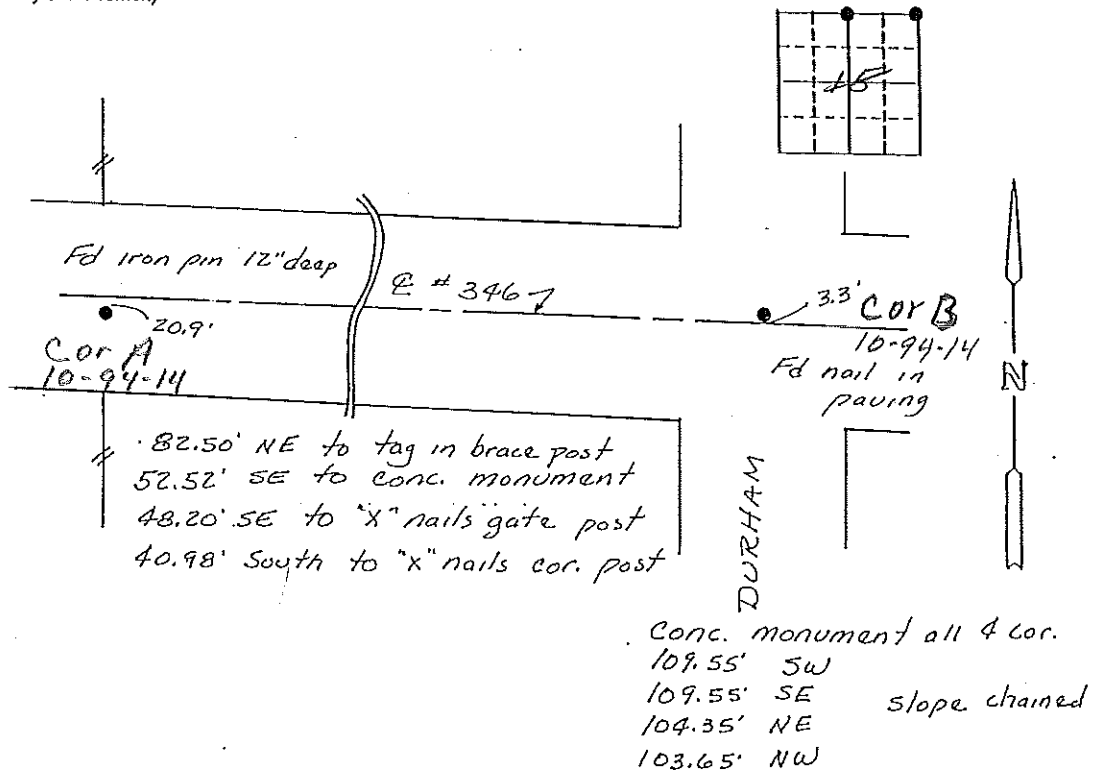 15
Fd iron pin 12" deep
℄ # 346
20.9'
3.3'
Cor A
10-94-14
Cor B
10-94-14
Fd nail in
paving
N
82.50' NE to tag in brace post
52.52' SE to conc. monument
48.20' SE to "X" nails gate post
40.98' South to "X" nails cor. post
DURHAM
Conc. monument all 4 cor.
109.55' SW
109.55' SE
slope chained
104.35' NE
103.65' NW